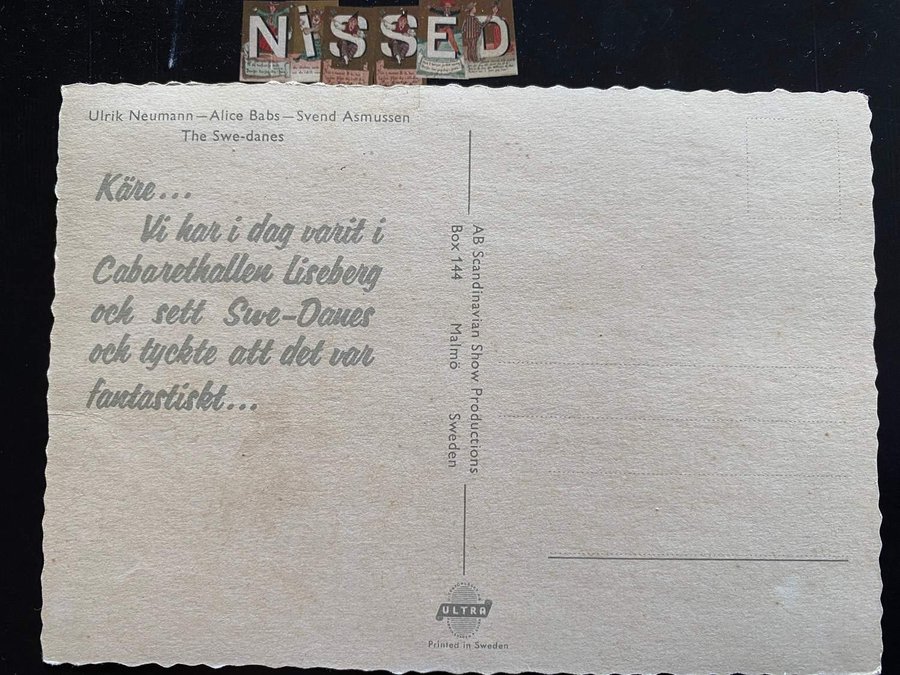 NiSSED
Ulrik Neumann—Alice Babs—Svend Asmussen
The Swe-danes
Käre...
Vi har i dag varit i
Cabarethallen Liseberg
och sett Swe-Danes
och tyckte att det var
fantastiskt...
AB Scandinavian Show Productions
Box 144 Malmö Sweden
ULTRA
Printed in Sweden